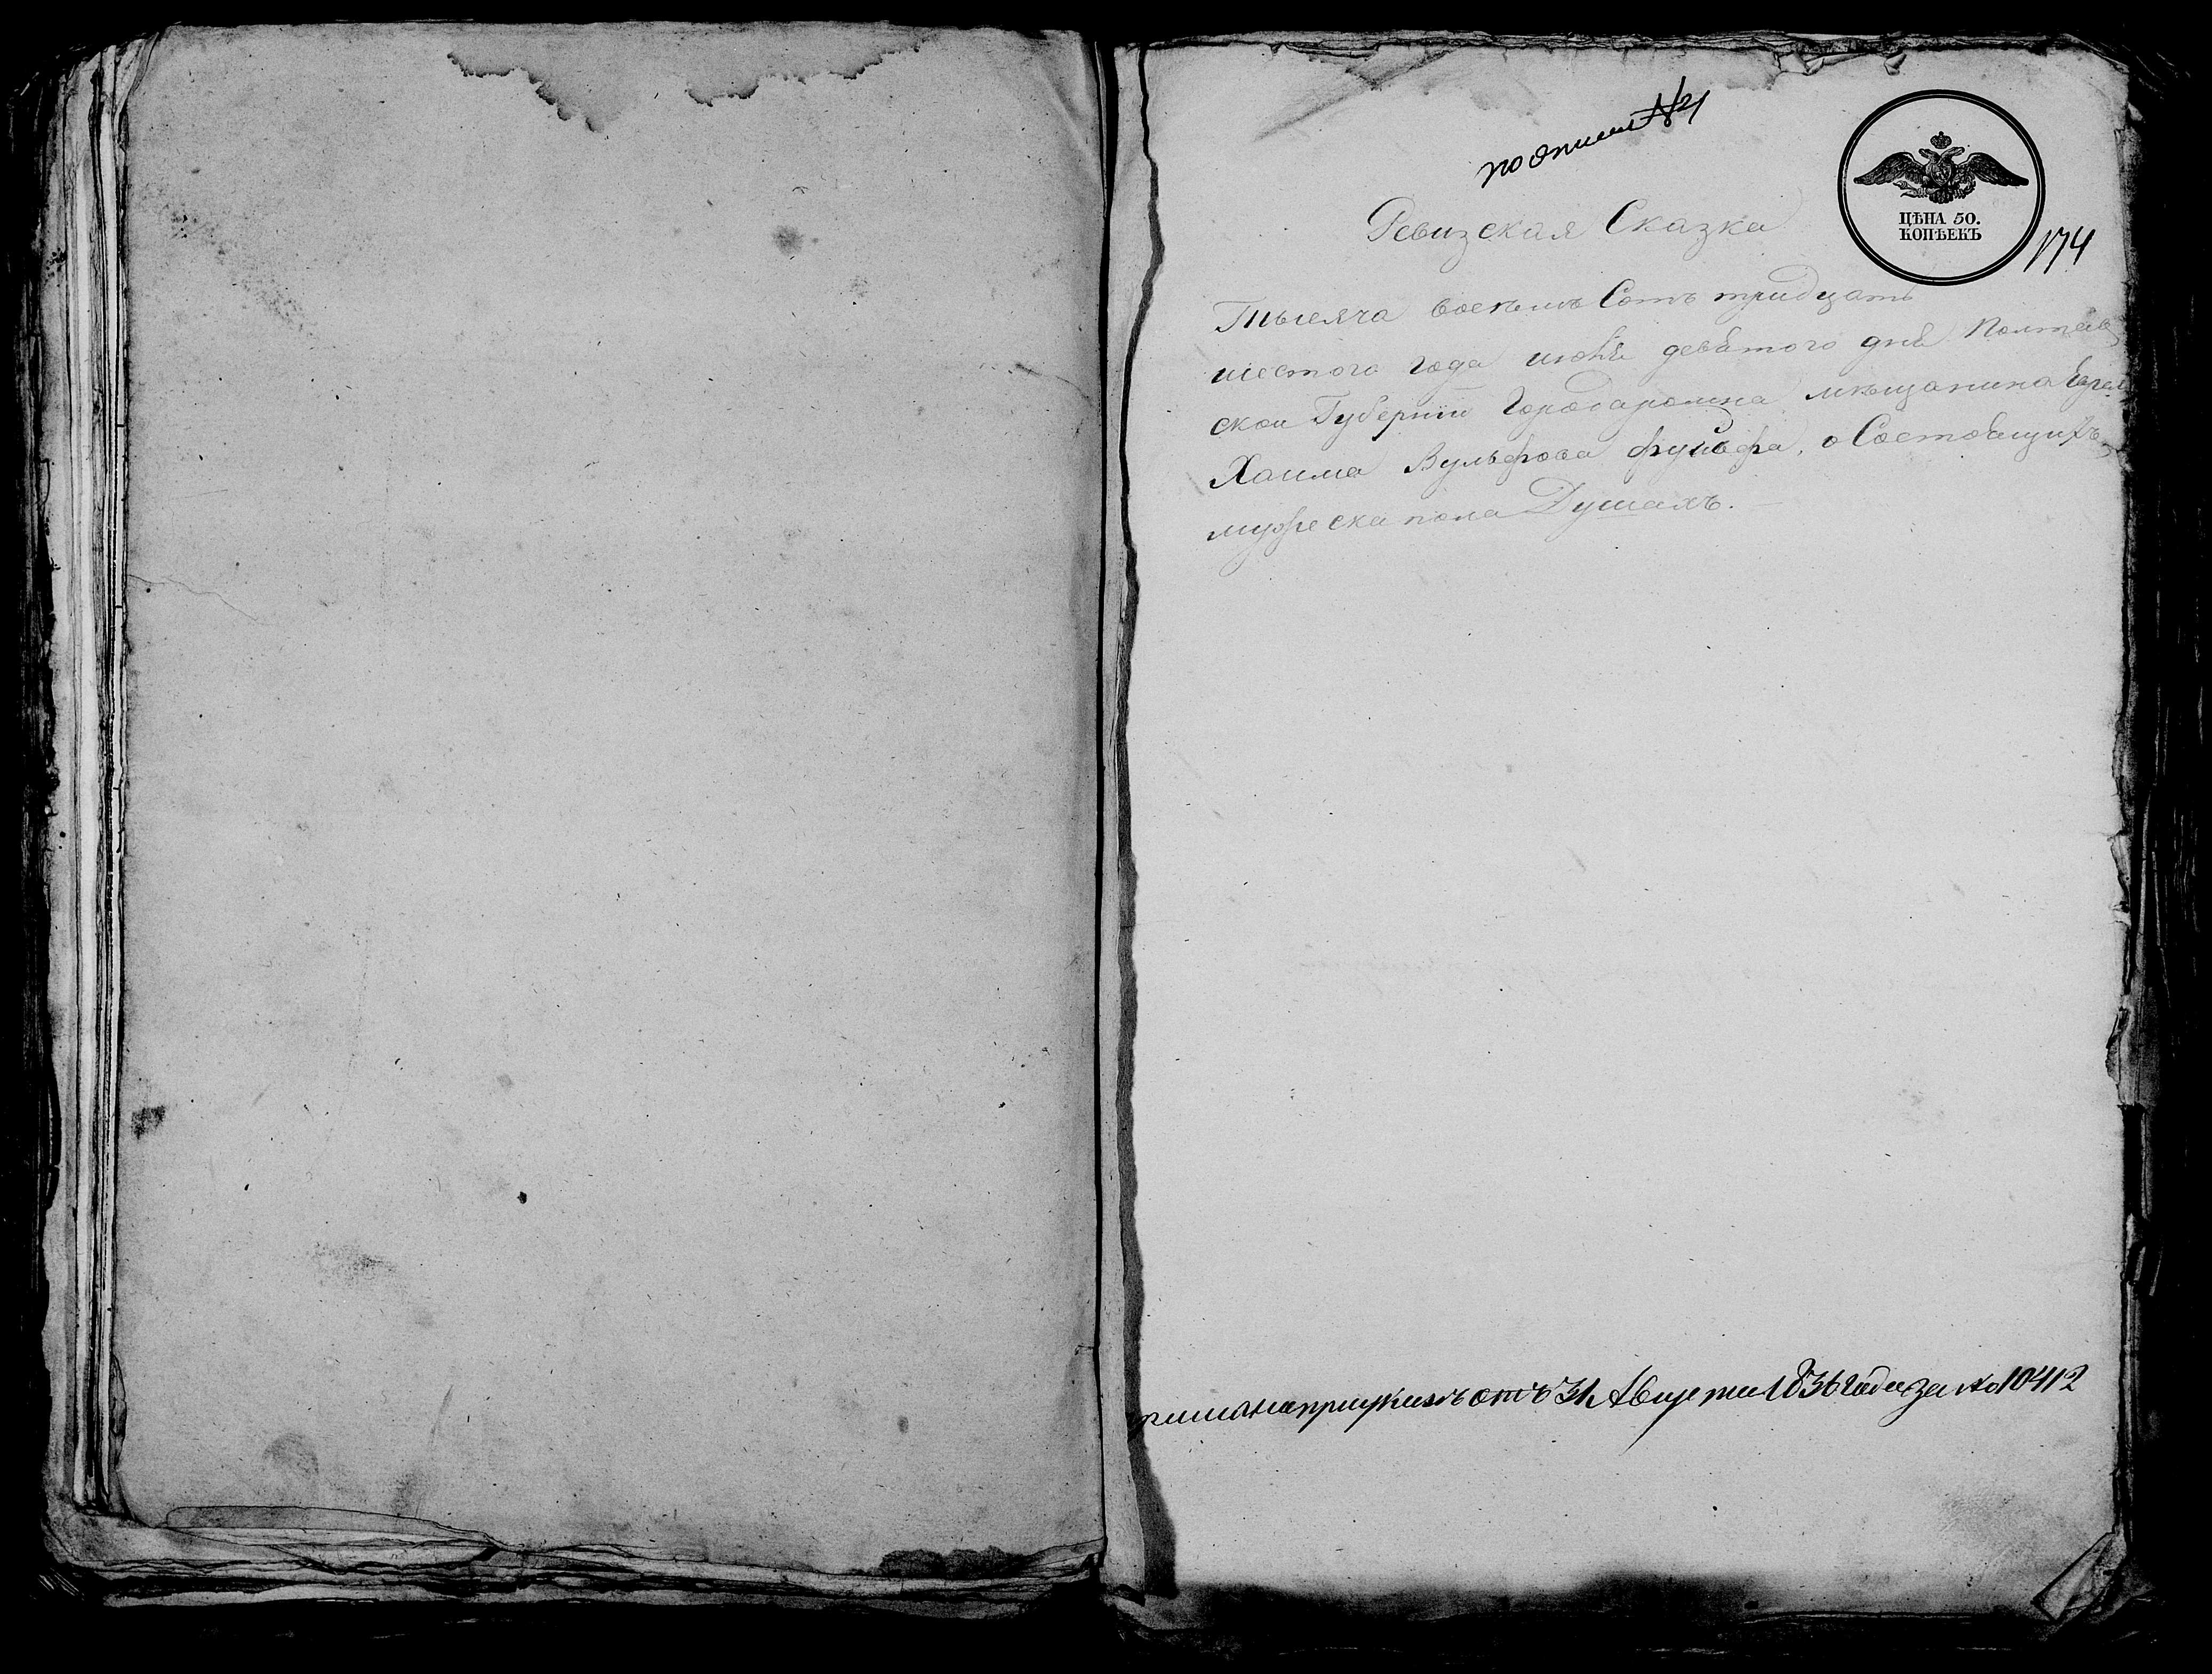 по описи №21
ЦѢНА 50.
КОПѢЕКЪ
174
Ревизская Сказка
Тысяча восемъ Сотъ тридцать
шестого года июня девятого дня Полтав
ской Губернии Города ромна мѣщанина
Хаима Вульфова о Состоящихъ
мужеска пола Душахъ.
при указѣ отъ 31 Августа 1836 года за № 10412